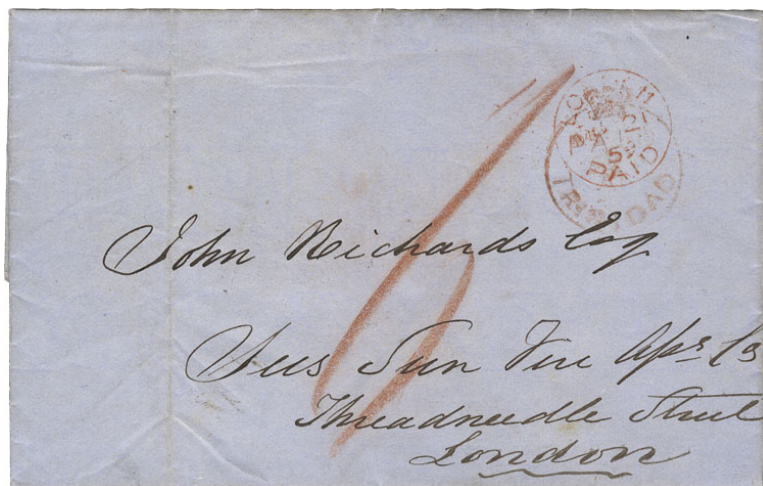 PAID
TRINIDAD
6
John Richards Esq
Sun Fire
Threadneedle Street
London